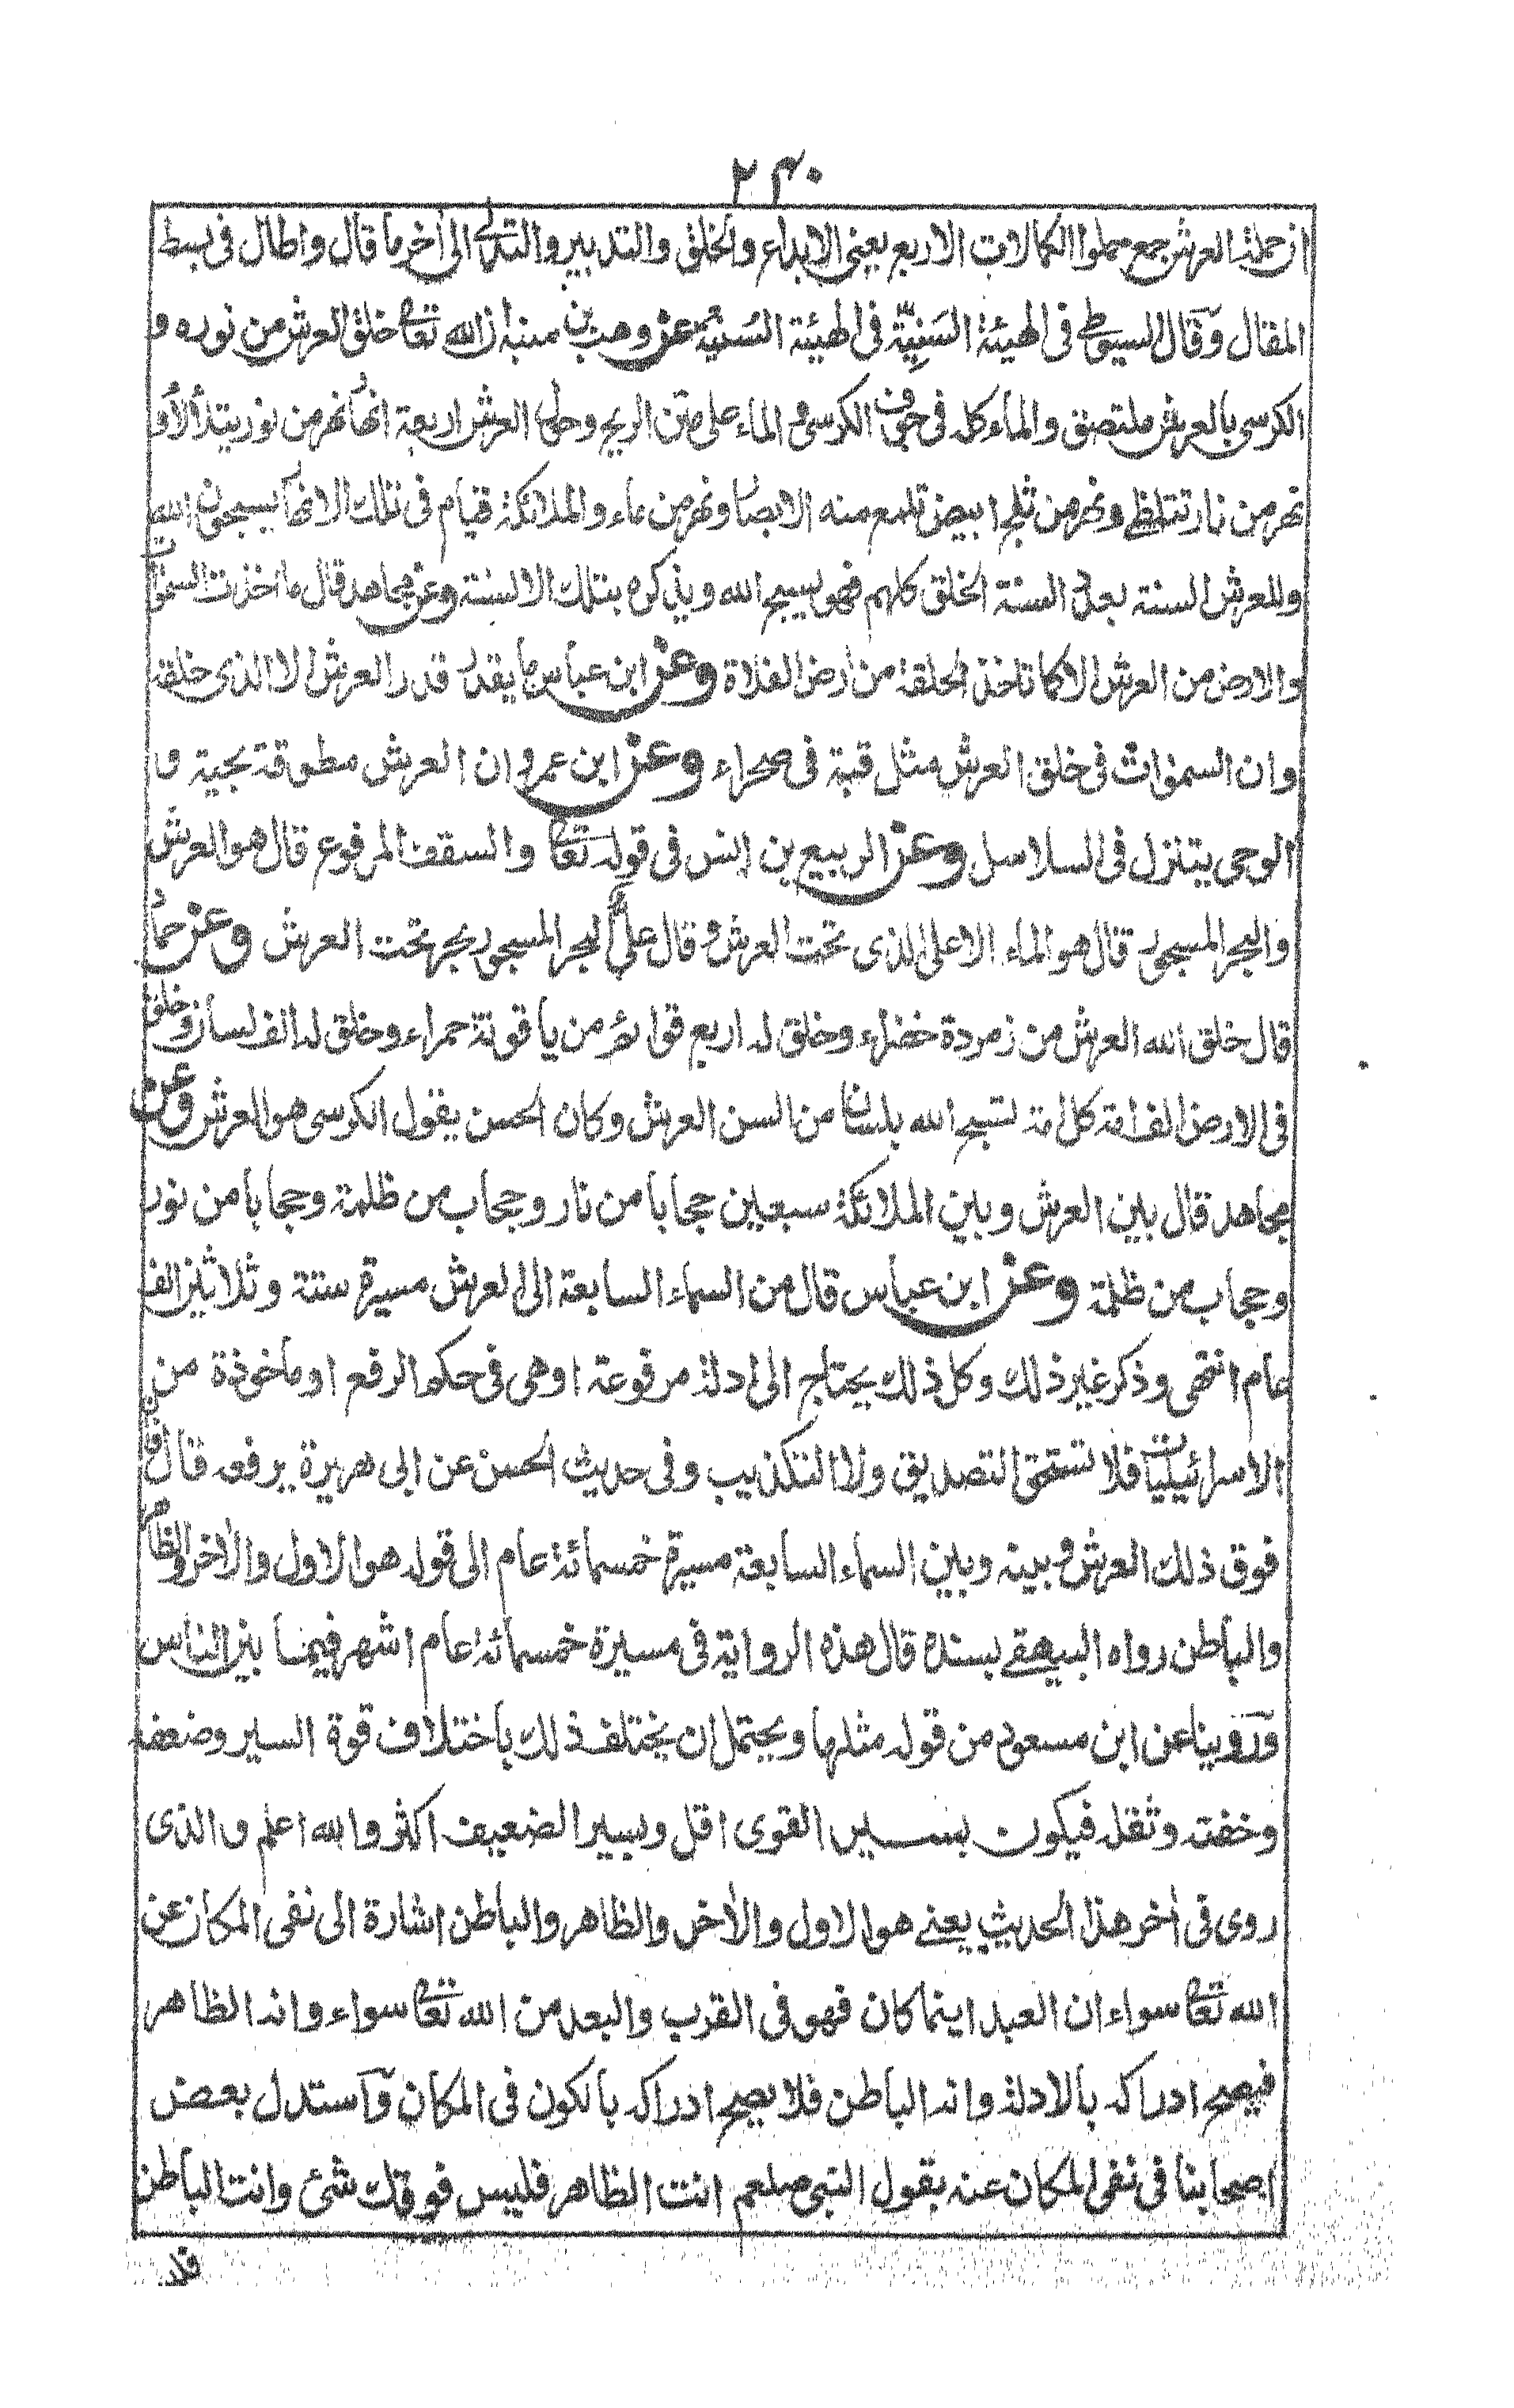 ٢٤٠
ان حملة العرش جمع حملوا الكمالات الاربع يعنى الابداع والخلق والتدبير والتدلى الى اخر ما قال واطال فى بسط
المقال وقال السيوطى فى الهيئة السَنِيّة فى الهيئة السُنيّة عن وهب بن منبه ان الله تعا خلق العرش من نوره و
الكرسى بالعرش ملتصق والماء كله فى جوف الكرسى و الماء على متن الريح وحول العرش اربعة انهار نهر من نور يتلألأ و
نهر من نار تتلظى ونهر من ثلج ابيض تلمع منه الابصار ونهر من ماء والملائكة قيام فى تلك الانهار يسبحون الله
وللعرش السنة بعدد السنة الخلق كلهم فهو يسبح الله ويذكره بتلك الالسنة وعن مجاهد قال ما اخذت السموات
والارض من العرش الا كما تاخذ الحلقة من ارض الفلاة وعن ابن عباس ما يقدر قدر العرش الا الذى خلقه
وان السموات فى خلق العرش مثل قبة فى صحراء وعن ابن عمرو ان العرش مطوقة بحية و
الوحى يتنزل فى السلاسل وعن الربيع بن انس فى قوله تعا والسقف المرفوع قال هو العرش
والبحر المسجور قال هو الماء الاعلى الذى تحت العرش و قال على البحر المسجور بحر تحت العرش وعن حماد
قال خلق الله العرش من زمردة خضراء وخلق له اربع قوائم من ياقوتة حمراء وخلق له الف لسان وخلق
فى الارض الف امة كل امة تسبح الله بلسان من السن العرش وكان الحسن يقول الكرسى هو العرش وعن
مجاهد قال بين العرش وبين الملائكة سبعين حجابا من نار وحجاب من ظلمة وحجابا من نور
وحجاب من ظلمة وعن ابن عباس قال من السماء السابعة الى العرش مسيرة ستة وثلاثين الف
عام انتهى وذكر غير ذلك وكل ذلك يحتاج الى ادلة مرفوعة او هى فى حكم الرفع او ماخوذة من
الاسرائيليات فلا تستحق التصديق ولا التكذيب وفى حديث الحسن عن ابى هريرة يرفعه قال فان
فوق ذلك العرش و بينه وبين السماء السابعة مسيرة خمسمائة عام الى قوله هو الاول والاخر والظاهر
والباطن رواه البيهقى بسنده قال هذه الرواية فى مسيرة خمسمائة عام اشهر فيما بين الناس
وروينا عن ابن مسعود من قوله مثلها ويحتمل ان يختلف ذلك باختلاف قوة السير وضعفه
وخفته وثقله فيكون بسير القوى اقل وبسير الضعيف اكثر والله اعلم و الذى
روى فى اخر هذا الحديث يعنى هو الاول والاخر والظاهر والباطن اشارة الى نفى المكان عن
الله تعا سواء ان العبد اينما كان فهو فى القرب والبعد من الله تعا سواء وانه الظاهر
فيصح ادراكه بالادلة وانه الباطن فلا يصح ادراكه بالكون فى المكان واستدل بعض
اصحابنا فى نفى المكان عنه بقول النبى صلعم انت الظاهر فليس فوقك شئ وانت الباطن